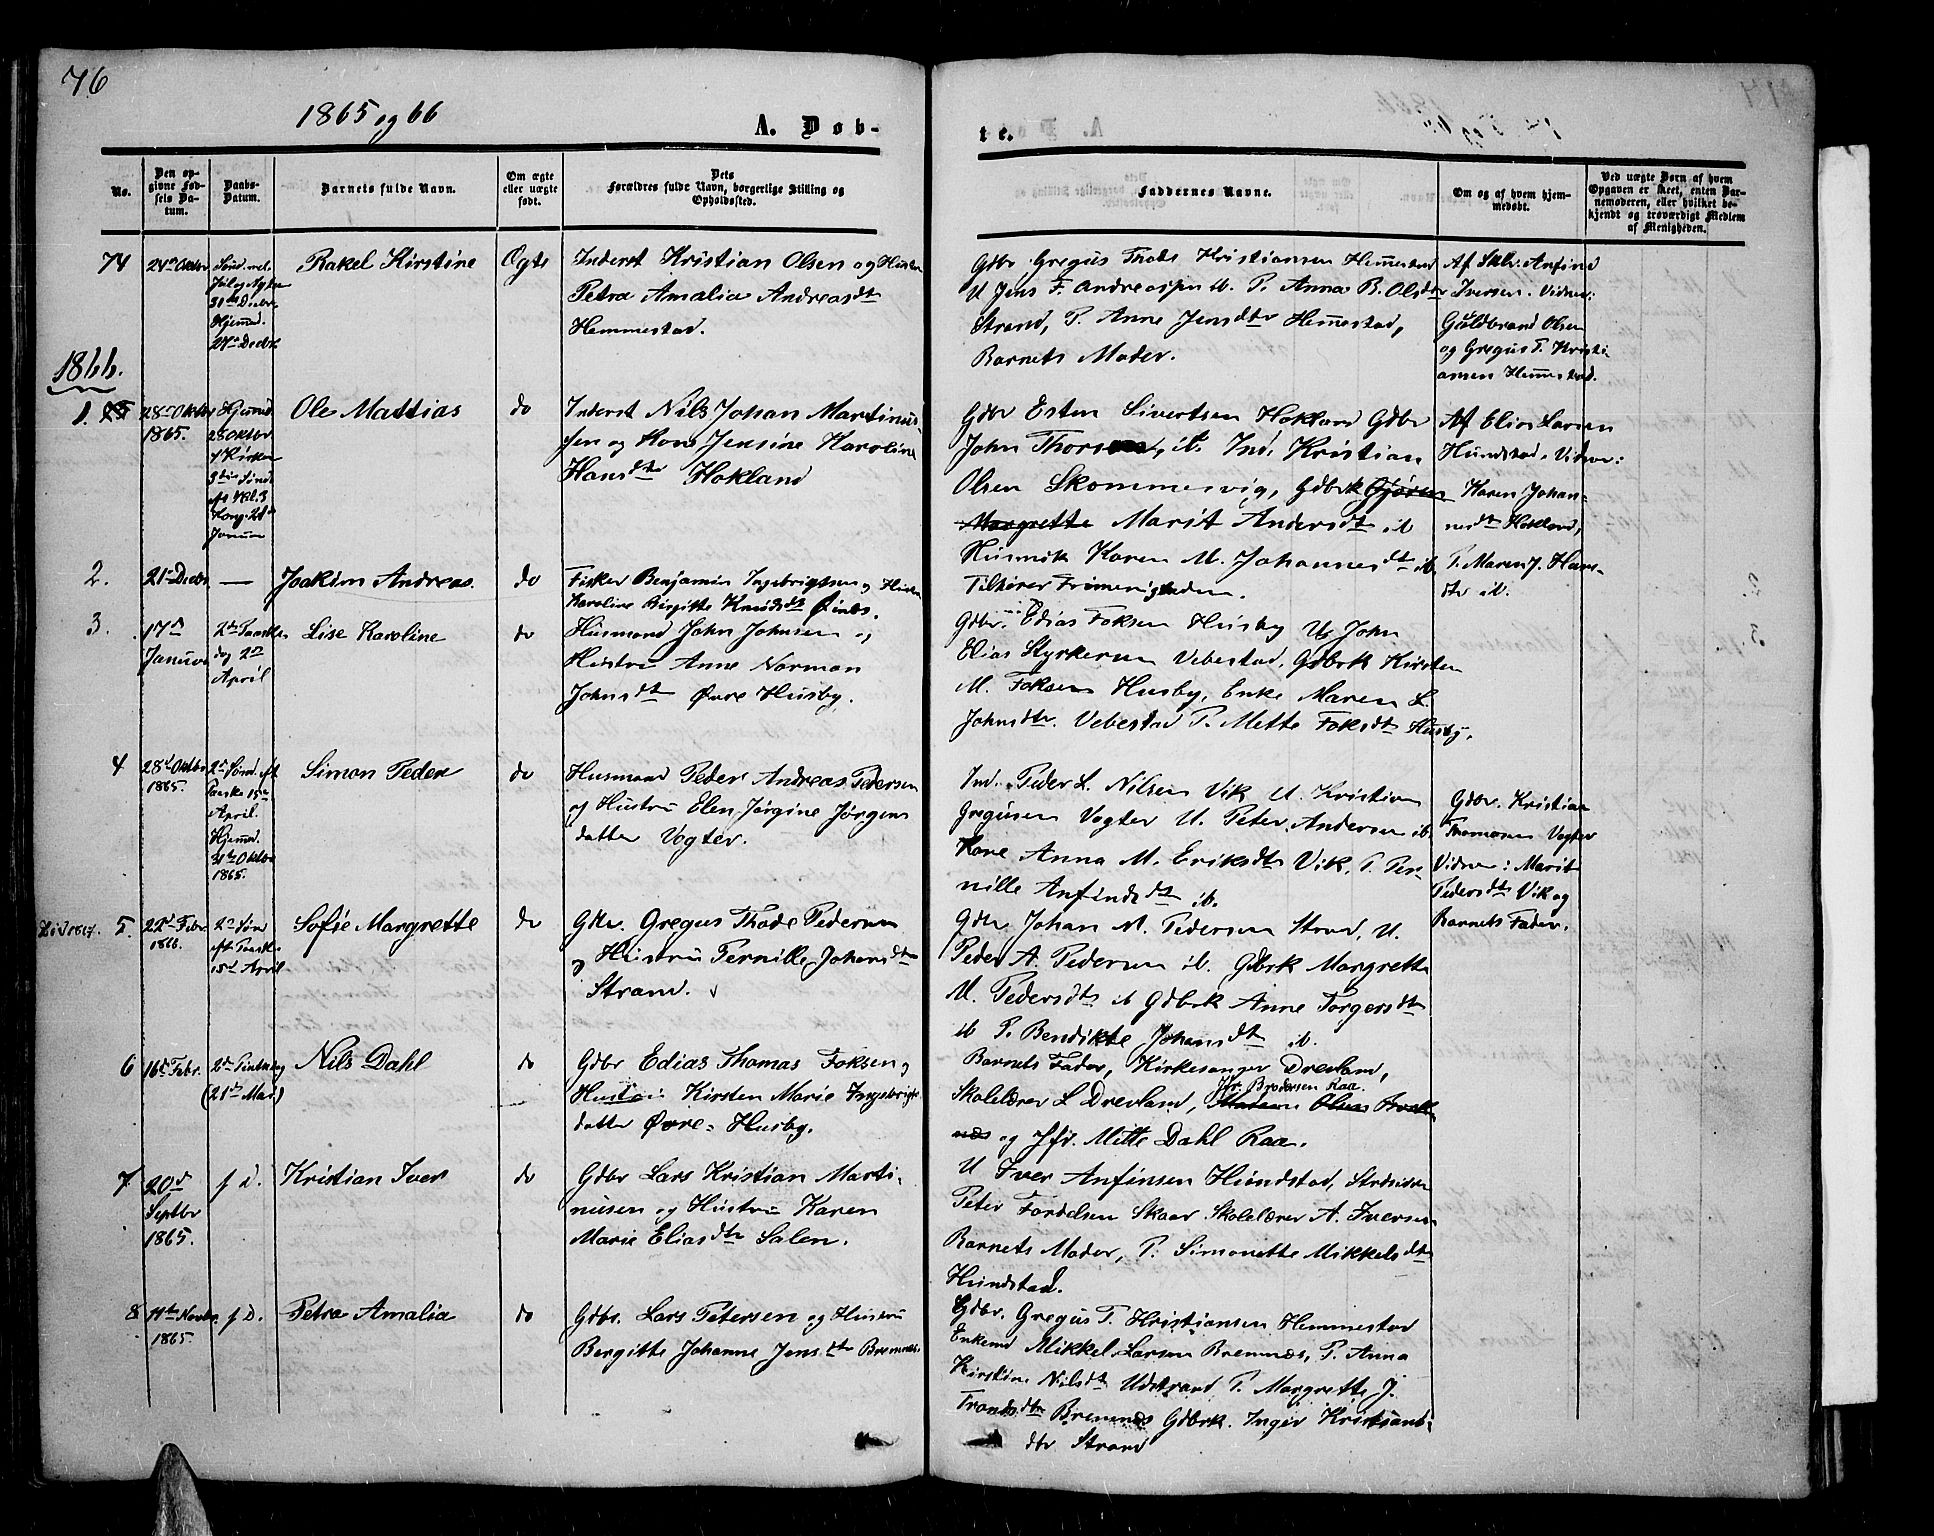 76
1865 og 66
A. Døb-
te.
No.
Den op-
givne Fød-
sels Da-
tum.
Daabs-
Datum.
Barnets fulde Navn.
Om ægte
eller uægte
født.
Dets
Forældres fulde Navn, borgerlige Stilling og
Opholdssted.
Faddernes Navne.
Om og af hvem hjem-
medøbt.
Ved uægte Børn af hvem
Opgaven er skeet, enten Bar-
nemoderen, eller hvilket be-
kjendt og troværdigt Medlem
af Menigheden.
74
24de Oktbr
Sønd. mel.
Jul og Nytaar
31te Decbr
Hjemmed.
27de Decbr
Rakel Kirstine
Ægte
Inderst Kristian Olsen og Hustru
Petra Amalia Andreasdtr
Hemmestad.
Gdbr Gregus Thode Kristiansen Hemmestad
U Jens F. Andreassen ib. P. Anna B. Olsdtr
Strand, P. Anne Jensdtr Hemmestad,
Barnets Moder.
Af Sklr. Anfind
Iversen. Vidner:
Guldbrand Olsen
og Gregus T. Kristi-
ansen Hemmestad.
1866.
1.
28de Oktbr
1865.
Hjemmd.
28 Oktbr
i Kirken
3die Sønd.
Januar
Ole Mattias
do
Inderst Nils Johan Martinus-
sen og Kone Jensine Karoline
Hansdtr Hokland
Gdbr Esten Sivertsen Hokland Gdbr
John Thorsen, ib. Ind. Kristian
Olsen Skommesvig, Gdbrk Gjøren
Margrette Marit Andersdtr ib
Husmk Karen M. Johannesdtr ib.
Tilhører Frimenigheden.
Af Elias Larsen
Hundstad. Vidner:
Karen Johan-
nesdtr Hokland,
P. Maren J. Hans-
dtr ib.
2.
21de Decbr
—
Joakim Andreas.
do
Fisker Benjamin Ingebrigtsen og Hustru
Karoline Birgitte Knudsdtr Øines.
3.
17de
Januar
2den Paaske-
dag 2den
April
Lise Karoline
do
Husmand John Johnsen og
Hustru Anne Norman
Johnsdtr Øvre Husby.
Gdbr. Edias Foksen Husby U. John
Elias Styrkersen Vebestad, Gdbrk Kirsten
M. Foksen Husby, Enke Maren L.
Johnsdtr. Vebestad P. Mette Foksdtr Husby.
4
28de Oktbr
1865.
2den Sønd. eft
Paaske 15de
April.
Hjemmed.
31te Oktbr
1865.
Simon Peder
do
Husmand Peder Andreas Pedersen
og Hustru Elen Jørgine Jørgens
datter Vogter.
Ind. Peder L. Nilsen Vik U. Kristian
Gregusen Vogter U. Peter Andersen ib.
Kone Anna M. Eriksdtr Vik, P. Per-
nille Anfindsdtr ib.
Gdbr. Kristian
Thomasen Vogter
Vidner: Marit
Pedersdtr Vik og
Barnets Fader.
5.
22de Febr.
1866.
2den Sønd
eft. Paaske
15de April
Sofie Margrette
do
Gdbr. Gregus Thode Pedersen
og Hustru Pernille Johansdtr
Strand.
Gdbr Johan M. Pedersen Strand, U.
Peder A. Pedersen ib. Gdbrk Margrette
M. Pedersdtr ib Gdbrk Anne Torgersdtr
ib P. Bendikte Johansdtr ib.
6
16de Febr.
2den Pintsedag
(21de Mai)
Nils Dahl
do
Gdbr Edias Thomas Foksen og
Hustru Kirsten Marie Ingebrigts
datter Øvre-Husby.
Barnets Fader, Kirkesanger Drevland,
Jfr. Brodersen Raa.
Skolelærer L Drevland,
og Jfr. Mette Dahl Raa.
7
20de
Septbr
1865.
f D.
Kristian Iver
do
Gdbr Lars Kristian Marti-
nusen og Hustru Karen
Marie Eliasdtr Salen.
U Iver Anfinsen Hundstad, Strandsidder
Peter Fordelsen Skaar Skolelærer A. Iversen
Barnets Moder, P. Simonette Mikkelsdtr
Hundstad.
8
11te Novbr.
1865.
f D.
Petra Amalia
do
Gdbr. Lars Petersen og Hustru
Bergitte Johanne Jensdtr Bremnes.
Gdbr. Gregus T. Kristiansen Hemmestad
Enkemd Mikkel Larsen Bremnes, P. Anna
Kirstine Nilsdtr Udstrand P. Margrette J.
Trondsdtr Bremnes Gdbrk. Inger Kristians-
dtr Strand